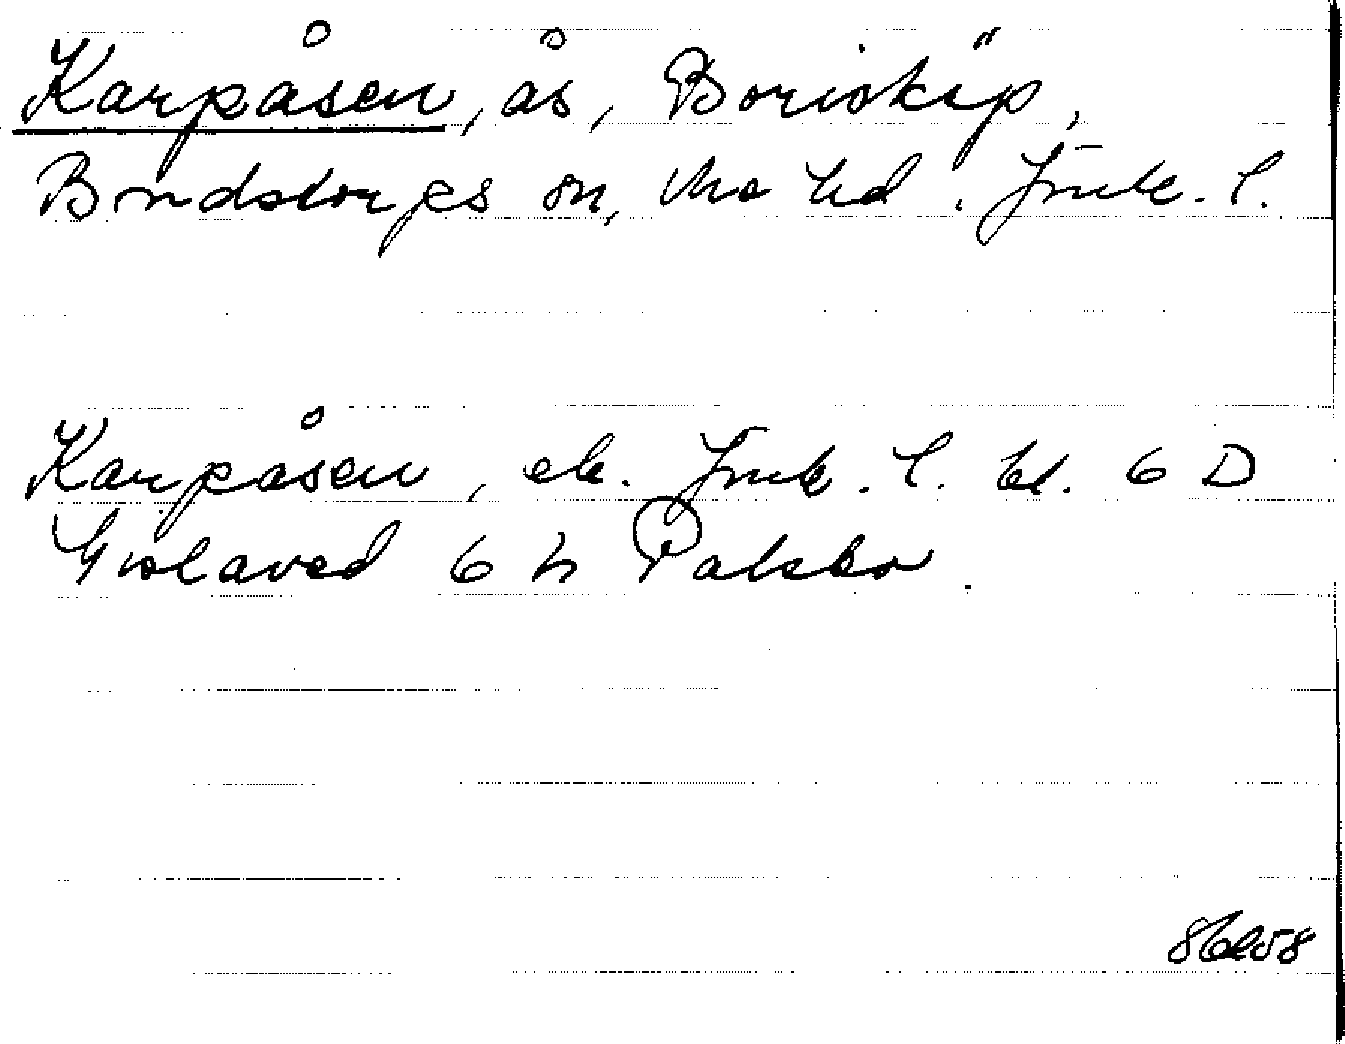 Karpåsen, ås, Boriskäp,
Bondstorps sn, Mo hd. Jmk. l.
Karpåsen, ek. Jmk. l. bl. 6 D
Gislaved 6 h Palsbo.